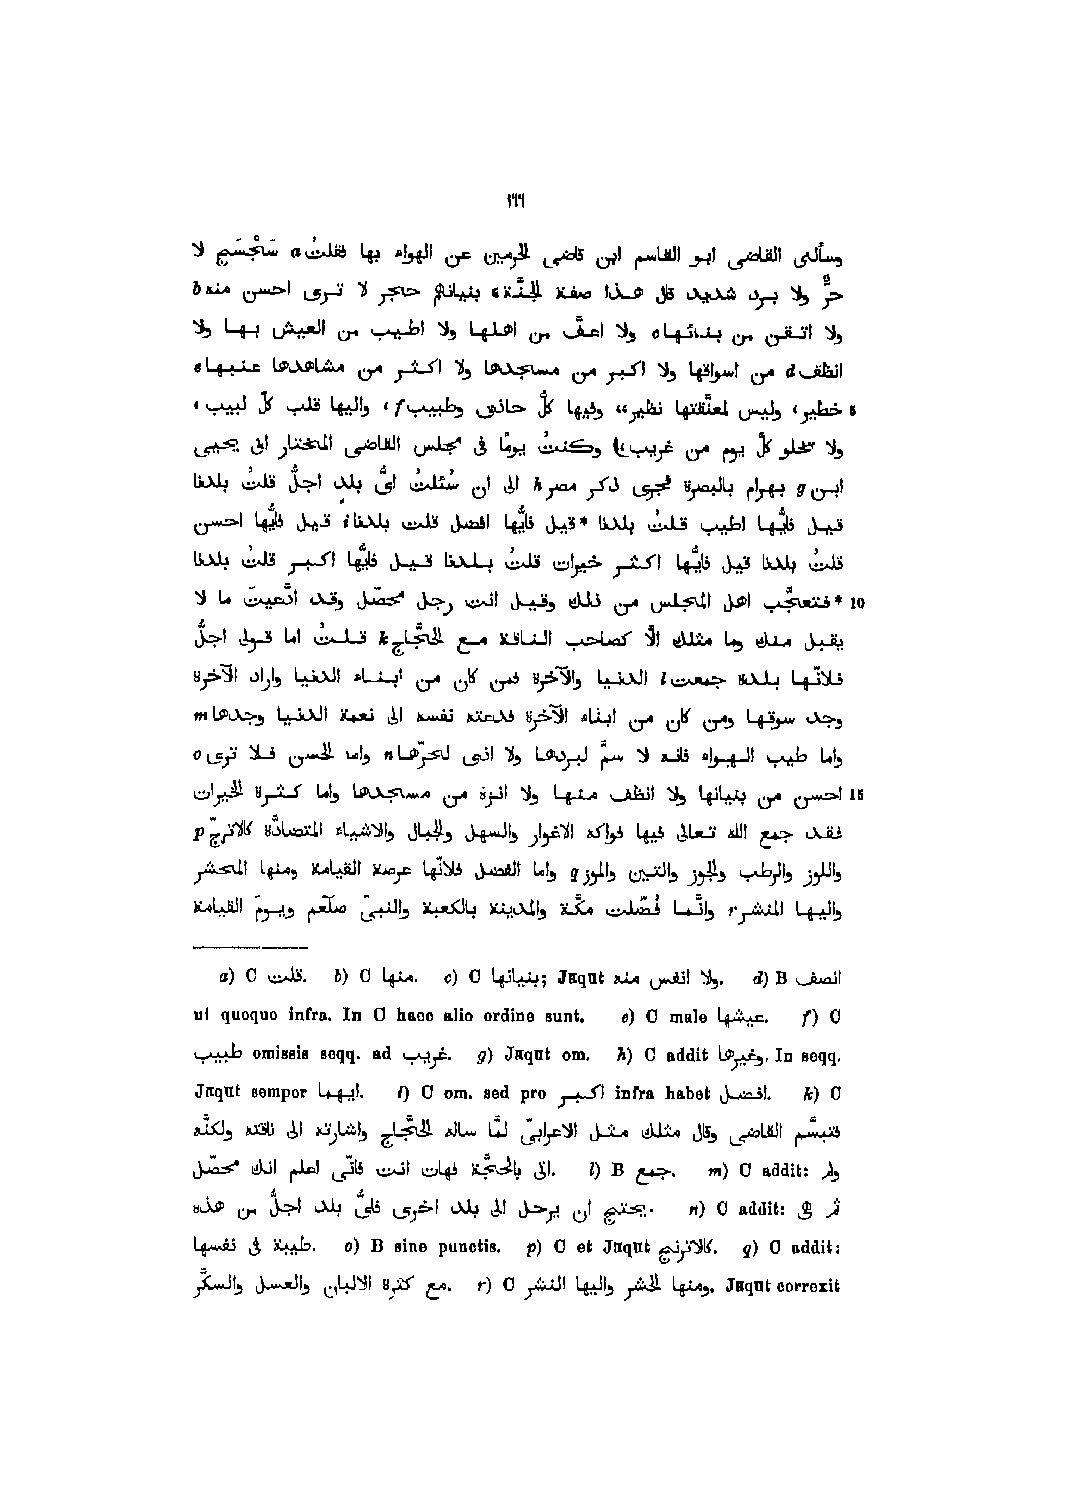 ١٦٦
وسألنى القاضى ابو القاسم ابن قاضى الحرمين عن الهواء بها فقلتُ a سَجْسَج لا
حرَّ ولا برد شديد قال هذا صفة الجنَّة، بنيانهم حجر لا ترى احسن منه b
ولا اتقن من بنائها c ولا اعفّ من اهلها ولا اطيب من العيش بها ولا
انظف d من اسواقها ولا اكبر من مسجدها ولا اكثر من مشاهدها عنبها e
5 خطير، وليس لمعنَّقتها نظير،، وفيها كلّ حاذق وطبيب f، واليها قلب كلّ لبيب،
ولا تخلو كلّ يوم من غريب، وكنتُ يومًا فى مجلس القاضى المختار ابى يحيى
ابن g بهرام بالبصرة فجرى ذكر مصر h الى ان سُئلتُ اىُّ بلد اجلُّ قلتُ بلدنا
قيل فايُّها اطيب قلتُ بلدنا *قيل فايُّها افضل قلت بلدنا i قيل فايُّها احسن
قلتُ بلدنا قيل فايُّها اكثر خيرات قلتُ بلدنا قيل فايُّها اكبر قلتُ بلدنا
10 *فتعجَّب اهل المجلس من ذلك وقيل انت رجل محصّل وقد ادَّعيتَ ما لا
يقبل منك وما مثلك الّا كصاحب الناقة مع الحجَّاج k قلتُ اما قولى اجلُّ
فلانّها بلدة جمعت l الدنيا والآخرة فمن كان من ابناء الدنيا واراد الآخرة
وجد سوقها ومن كان من ابناء الآخرة فدعته نفسه الى نعمة الدنيا وجدها m
واما طيب الهواء فانه لا سمَّ لبردها ولا اذى لحرّها n واما الحسن فلا ترى o
15 احسن من بنيانها ولا انظف منها ولا انزه من مسجدها واما كثرة الخيرات
فقد جمع الله تعالى فيها فواكه الاغوار والسهل والجبال والاشياء المتضادَّة كالاترجّ p
واللوز والرطب والجوز والتين والموز q واما الفضل فلانّها عرصة القيامة ومنها المحشر
واليها المنشر r وانَّما فُضّلت مكَّة والمدينة بالكعبة والنبىّ صلّعم ويومَ القيامة
a) C قلت. b) C منها. c) C بنيانها; Jaqut ولا انفس منه. d) B انصف
ut quoquo infra. In C haec alio ordine sunt. e) C male عيشها. f) C
طبيب omissis seqq. ad غريب. g) Jaqut om. h) C addit وغيرها. In seqq.
Jaqut semper ايهما. i) C om. sed pro اكبر infra habet افضل. k) C
فتبسَّم القاضى وقال مثلك مثل الاعرابىّ لمَّا ساله الحجَّاج واشارته الى ناقته ولكنَّه
الى بالحجَّة فهات انت فانّى اعلم انك محصّل. l) B جمع. m) C addit: ولم
يحتج ان يرحل الى بلد اخرى فاىُّ بلد اجلُّ من هذه. n) C addit: ثم هى
طيبة فى نفسها. o) B sine punctis. p) C et Jaqut كالاترنج. q) C addit:
مع كثرة الالبان والعسل والسكَّر. r) C ومنها الحشر واليها النشر. Jaqut correxit